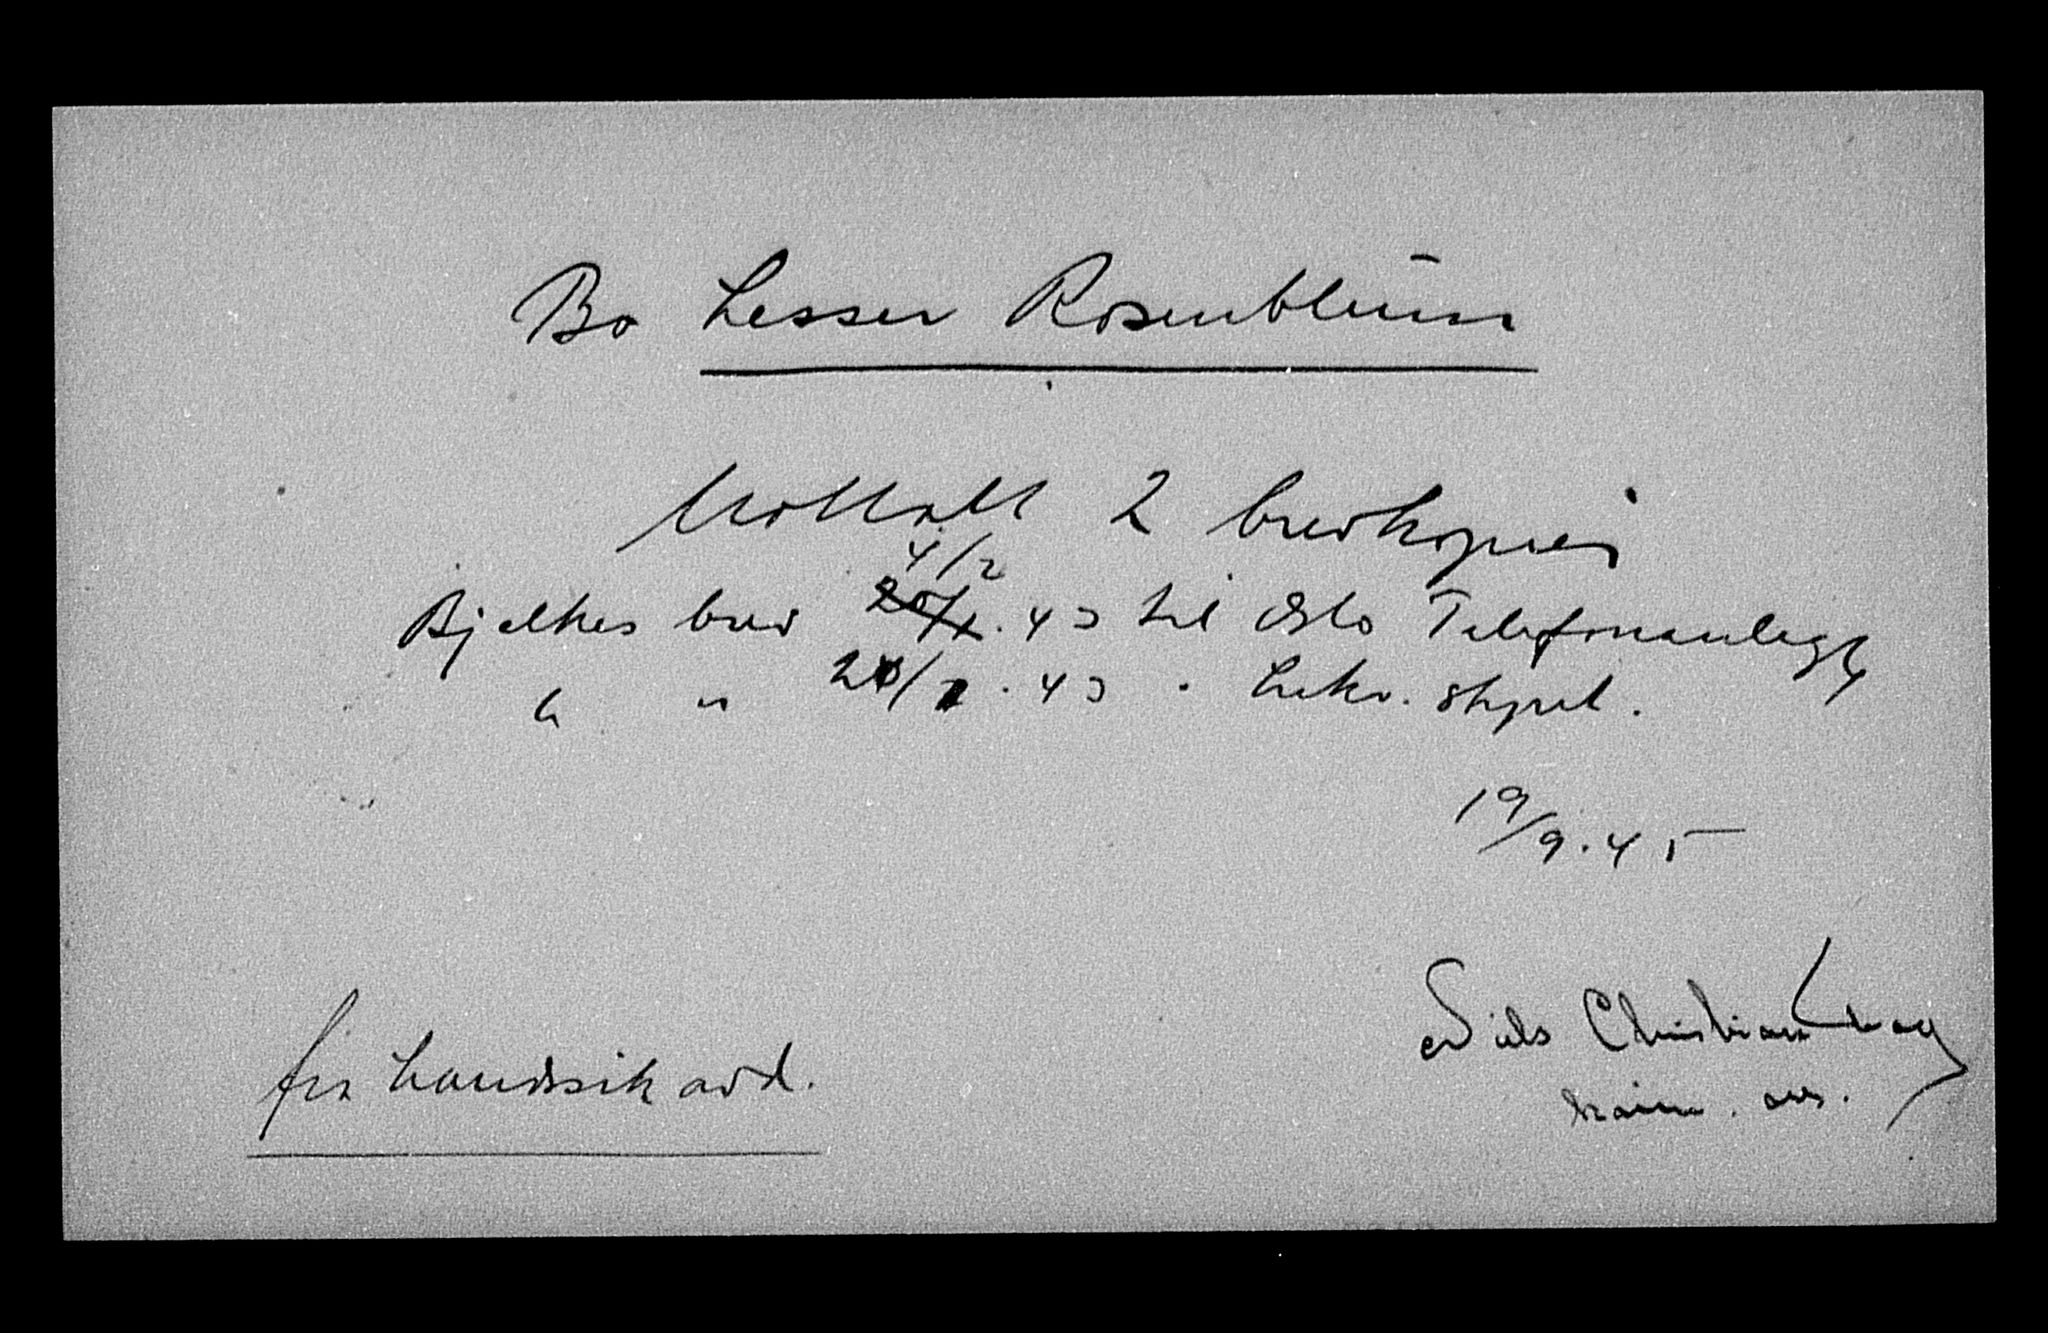 Bo Lesser Rosenblüm
Mottatt 2 brevkopier
4/2
Bjelkes brev 20/1. 43 til Oslo Telefonanlegg
" " 20/1. 43 " Likv. styret.
19/9. 45
Niels Christian
fra Landssikavd.